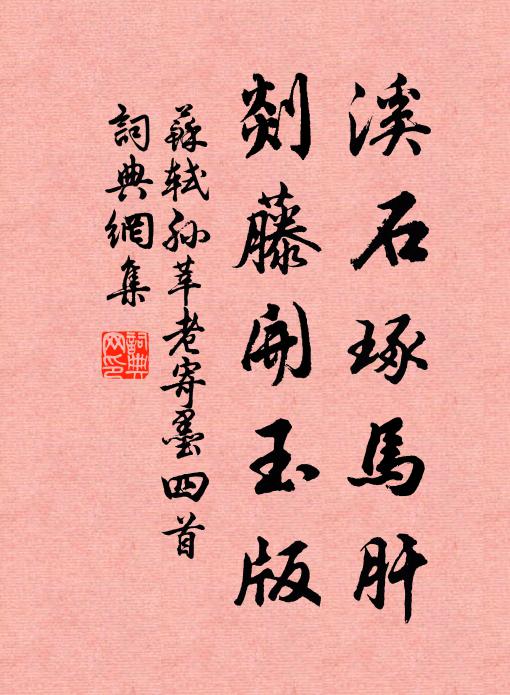 溪石琢馬肝
剡藤開玉版
蘇軾孫莘老寄墨四首
詞典網集
詞典網印